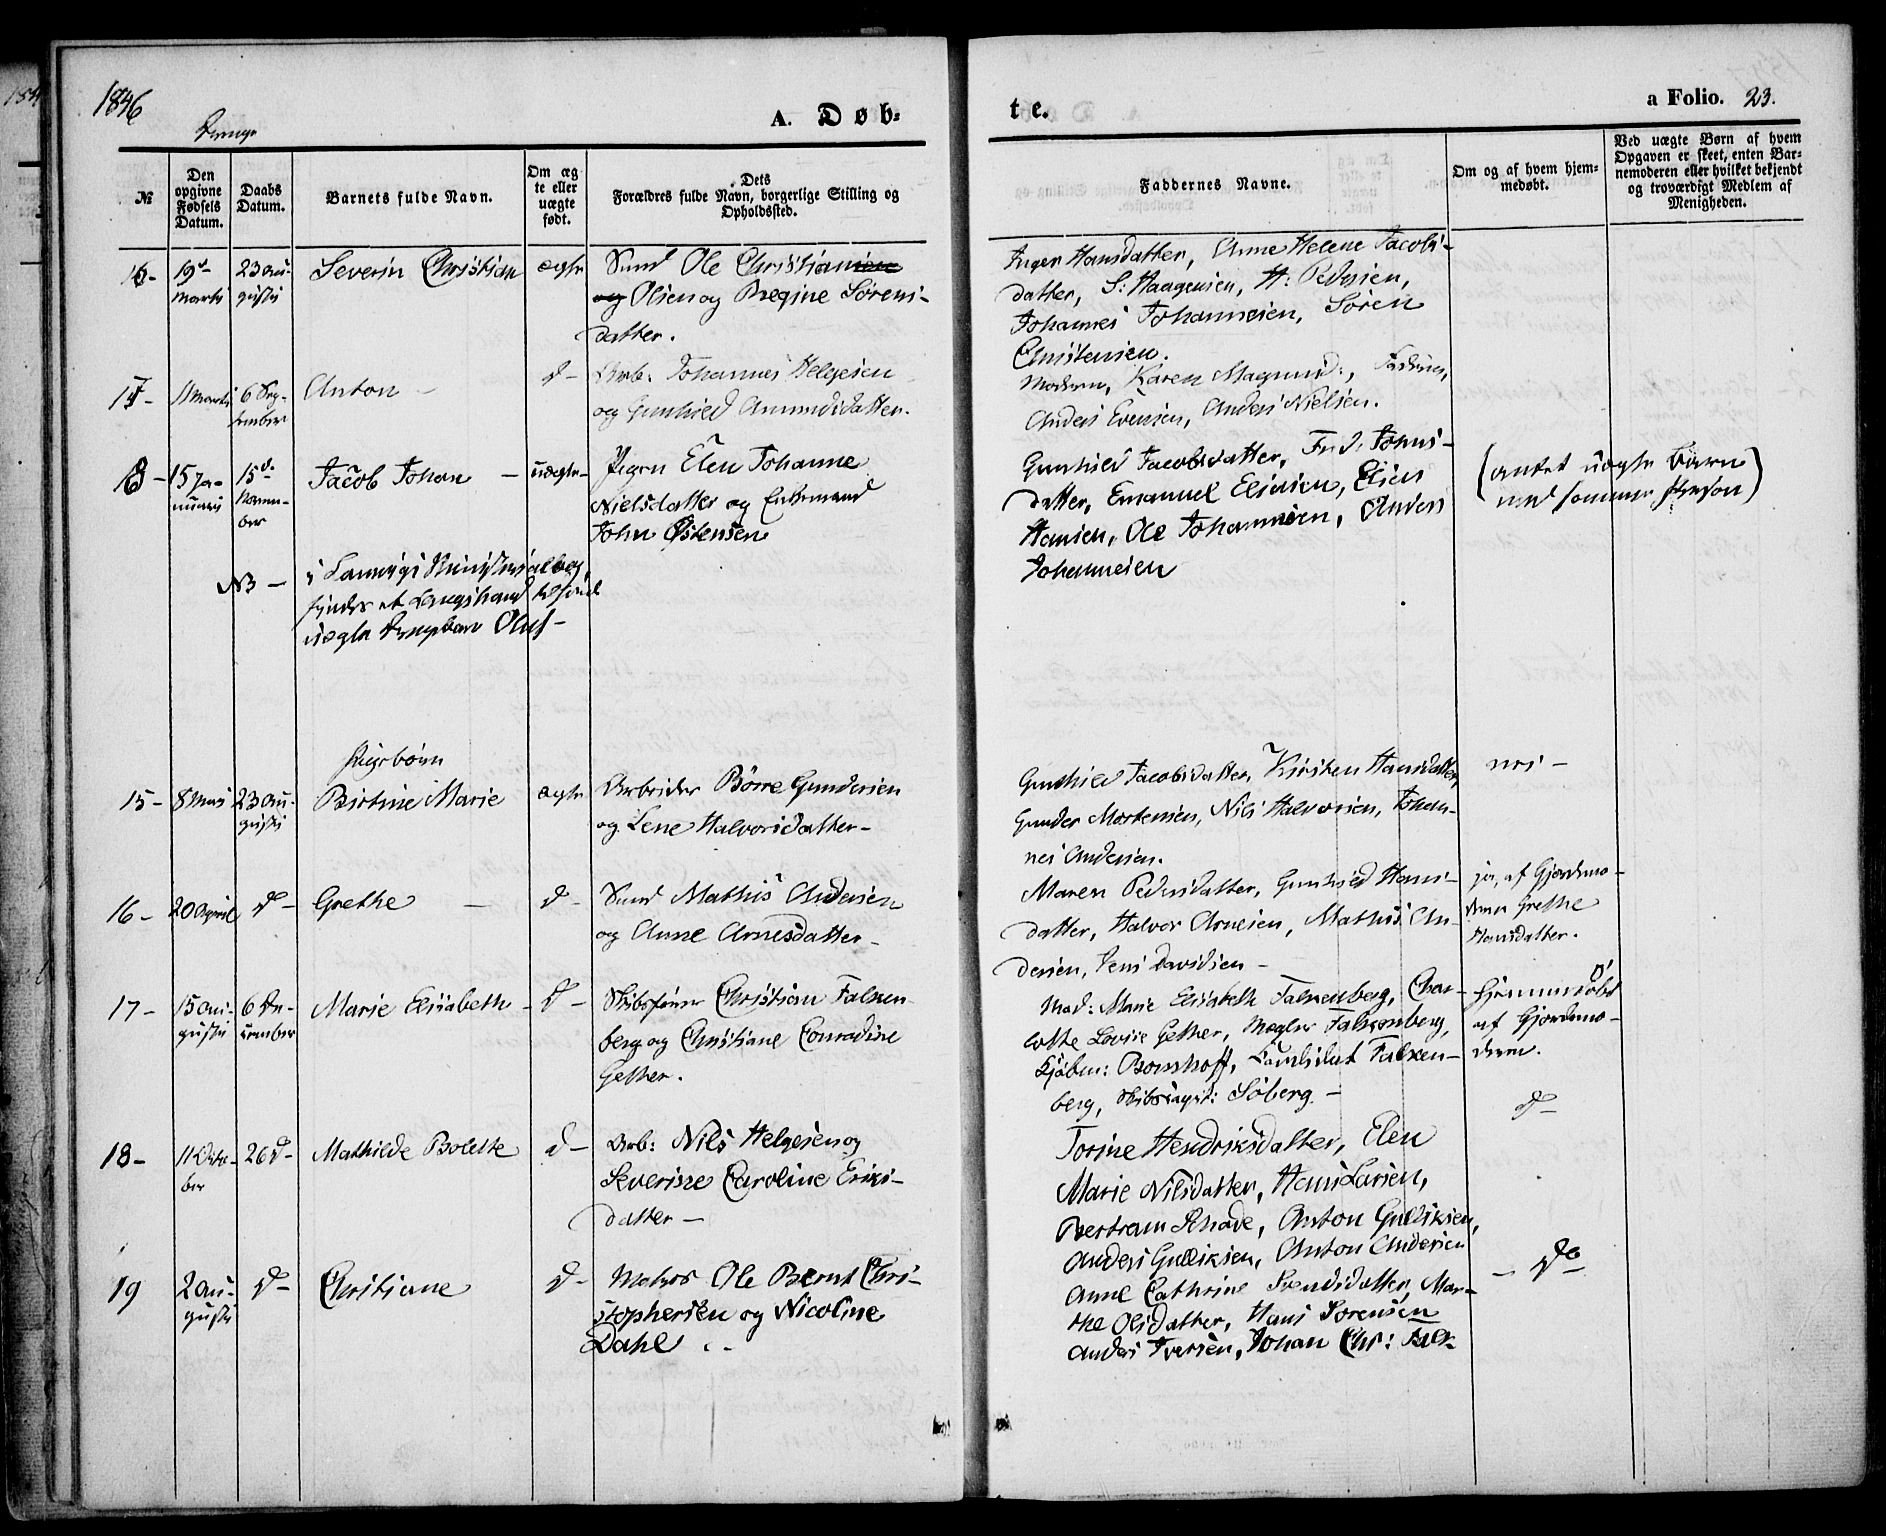 1846
Drenge
A. Døb-
te.
a Folio. 23.
№
Den opgivne Fødsels Datum.
Daabs Datum.
Barnets fulde Navn.
Om ægte eller uægte født.
Dets Forældres fulde Navn, borgerlige Stilling og Opholdssted.
Faddernes Navne.
Om og af hvem hjemmedøbt.
Ved uægte Børn af hvem Opgaven er skeet, enten Barnemoderen eller hvilket bekjendt og troværdigt Medlem af Menigheden.
16-
19d-
Martii
23 Au-
gusti
Severin Christian
ægte
Ole Christiansen
og Olsen og Regine Sørens-
datter.
Inger Hansdatter, Anne Helene Jacobs-
datter, S: Haagensen, H: Pedersen,
Johannes Johannesen, Søren
Christensen.
17-
11 Martii
6 Sep-
tember
Anton -
d-
Arb: Johannes Helgesen
og Gunhild Amundsdatter.
Moderen, Karen Magnusd:, Faderen,
Anders Evensen, Anders Nielsen.
18-
15 Ja-
nuarii
15d-
Novem-
ber
Jacob Johan -
uægte-
Pigen Elen Johanne
Nielsdatter og Enkemand
John Østensen
Gunhild Jacobsdatter, Johns-
datter, Emanuel Eliesen, Elias
Hansen, Ole Johannesen, Anders
Johannesen
(andet uægte Barn
med samme Person)
NB -
i Langesunds Ministerialbog
findes et Langesund tilførd
uægte Drengebarn Oluf-
Pigebørn
15-
8 Maii
23 Au-
gusti
Birtine Marie
ægte
Arbeider Börre Gundersen
og Lene Halvorsdatter-
Gunhild Jacobsdatter, Kirsten Hansdatter,
Gunder Mortensen, Nils Halvorsen, Johan-
nes Andersen.
nei -
16-
20 April
d-
Grethe -
d-
Mathis Andersen
og Anne Arnesdatter-
Maren Pedersdatter, Gunhild Hans-
datter, Halvor Arnesen, Mathis An-
dersen, Jens Davidsen -
ja, af Gjordemo-
deren Grethe
Hansdatter.
17-
15 Au-
gusti
6 De-
cember
Marie Elisabeth -
d-
Skibsfører Christian Falken-
berg og Christiane Conradine
Gether.
Mad: Marie Elisabeth Falkenberg, Char-
lotte Lovise Gether, Mægler Falkenberg,
Kjöbm: Bomhoff, Candidat Falken-
berg, Skibscapit: Söberg. -
Hjemmedøbt
af Gjordemo-
deren.
18-
11 Octo-
ber
26 d-
Mathilde Bolette
d-
Arb: Nils Helgesen og
Severine Caroline Eriks-
datter -
Torine Hendriksdatter, Elen
Marie Nilsdatter, Hans Larsen,
Bertram Rhode, Anton Gulliksen,
Anders Gulliksen, Anton Andersen
d-
19
2 Au-
gusti
d-
Christiane
d-
Matros Ole Bernt Chri-
stophersen og Nicoline
Dahl . .
Anne Cathrine Svendsdatter, Mar-
the Olsdatter, Hans Sørensen
Anders Iversen, Johan Chr: Falk
- do